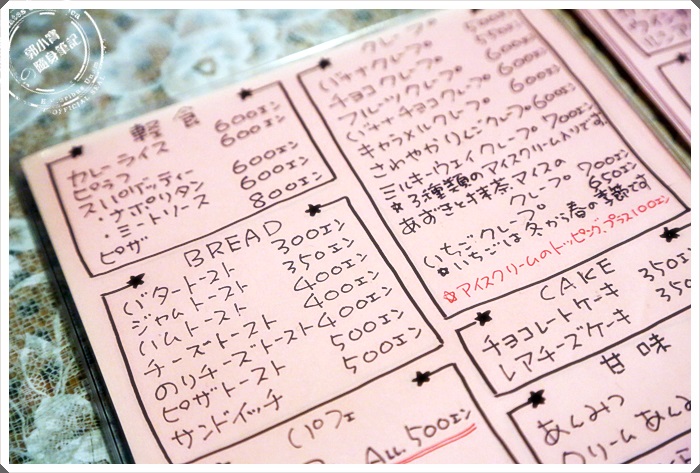 郭小寶
隨身筆記
軽食
カレーライス 600エン
ピラフ 600エン
スパゲッティー
・ナポリタン 600エン
・ミートソース 600エン
ピザ 800エン
BREAD
バタートースト 300エン
ジャムトースト 350エン
ハムトースト 400エン
チーズトースト 400エン
のりチーズトースト 400エン
ピザトースト 500エン
サンドイッチ 500エン
パフェ
ALL. 500エン
クレープ 500エン
バナナクレープ 550エン
チョコクレープ
フルーツクレープ 600エン
バナナチョコクレープ 600エン
キャラメルクレープ 600エン
さわやかりんごクレープ 600エン
ミルキーウェイクレープ 700エン
☆3種類のアイスクリーム入りです。
あずきと抹茶アイスの
クレープ 700エン
いちごクレープ 650エン
☆いちごは冬から春の季節です
☆アイスクリームのトッピング、プラス100エン
CAKE
チョコレートケーキ 350エ
レアチーズケーキ 350
甘味
あんみつ
クリームあんみ